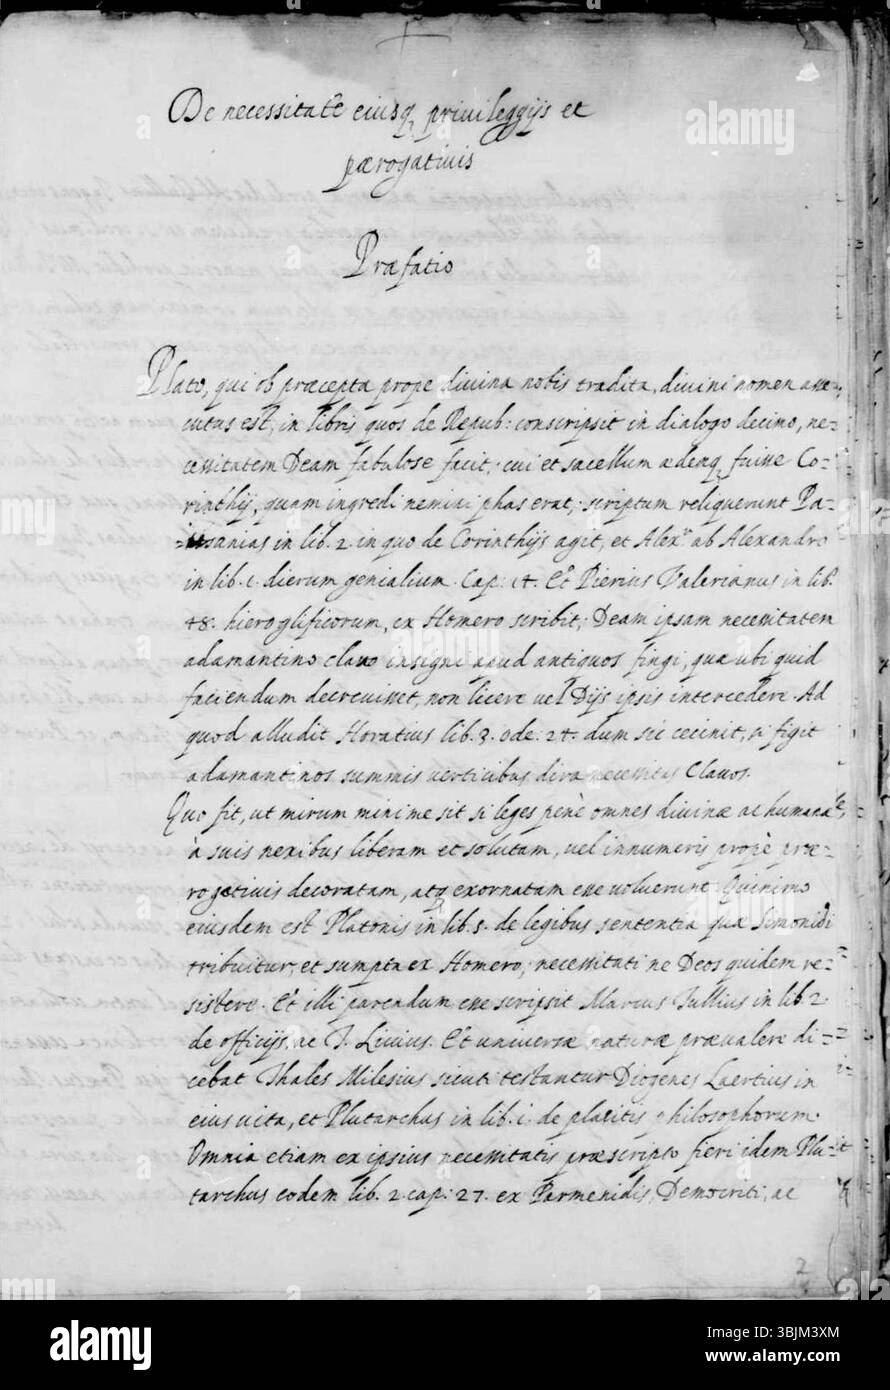 De necessitate eiusq, privileggijs et
prærogativis
Præfatio
Plato, qui ob præcepta prope divina nobis tradita, divini nomen asse-
cutus est, in libris quos de Repub: conscripsit in dialogo decimo, ne-
cessitatem Deam fabulose facit; cui et sacellum ædemq, fuisse Co-
rinthij, quam ingredi nemini phas erat; scriptum reliquerunt Pa-
=usanias in lib. 2. in quo de Corinthijs agit, et Alexr. ab Alexandro
in lib. 1. dierum genialium. Cap: 14. Et Pierius Valerianus in lib.
48. hieroglificorum, ex Homero scribit; Deam ipsam necessitatem
adamantino clavo insigni apud antiquos fingi, quæ ubi quid
faciendum decrevisset, non licere vel Dijs ipsis intercedere. Ad
quod alludit Horatius lib. 3. ode: 24. dum sic cecinit, si figit
adamantinos summis verticibus dira necessitas Clavos.
Quo fit, ut mirum minime sit si leges penè omnes divinæ ac humanæ
à suis nexibus liberam et solutam, vel innumeris propè præ-
rogativis decoratam, atq, exornatam esse voluerunt. Quinimo
eiusdem est Platonis in lib. 5. de legibus sententia quæ Simonidi
tribuitur, et sumpta ex Homero; necessitati ne Deos quidem re-
sistere. Et illi parendum esse scripsit Marcus Tullius in lib. 2
de officijs, ac T. Livius. Et universæ naturæ prævalere di-
cebat Thales Milesius sicuti testantur Diogenes Laertius in
eius vita, et Plutarchus in lib. 1. de placitis philosophorum.
Omnia etiam ex ipsius necessitatis præscripto fieri idem Plu-
tarchus eodem lib. 2. cap: 27. ex Parmenidis, Democriti, ac
2
alamy
Image ID: 3BJM3XM
www.alamy.com